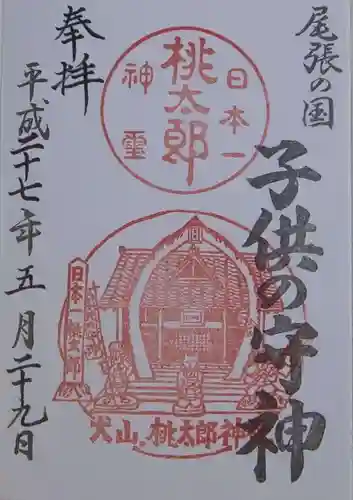 尾張の国
子供の守神
奉拝
日本一
桃太郎
神霊
日本一桃太郎
犬山.桃太郎神
平成二十七年五月二十九日